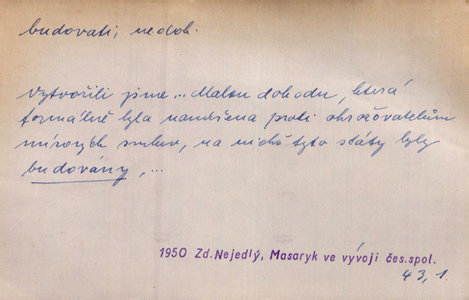 budovati, nedok.
vytvořili jsme... Malou dohodu, která
formálně byla namířena proti ohrožovatelům
mírových smluv, na nichž tyto státy byly
budovány,...
1950 Zd. Nejedlý, Masaryk ve vývoji čes. spol.
43, 1.